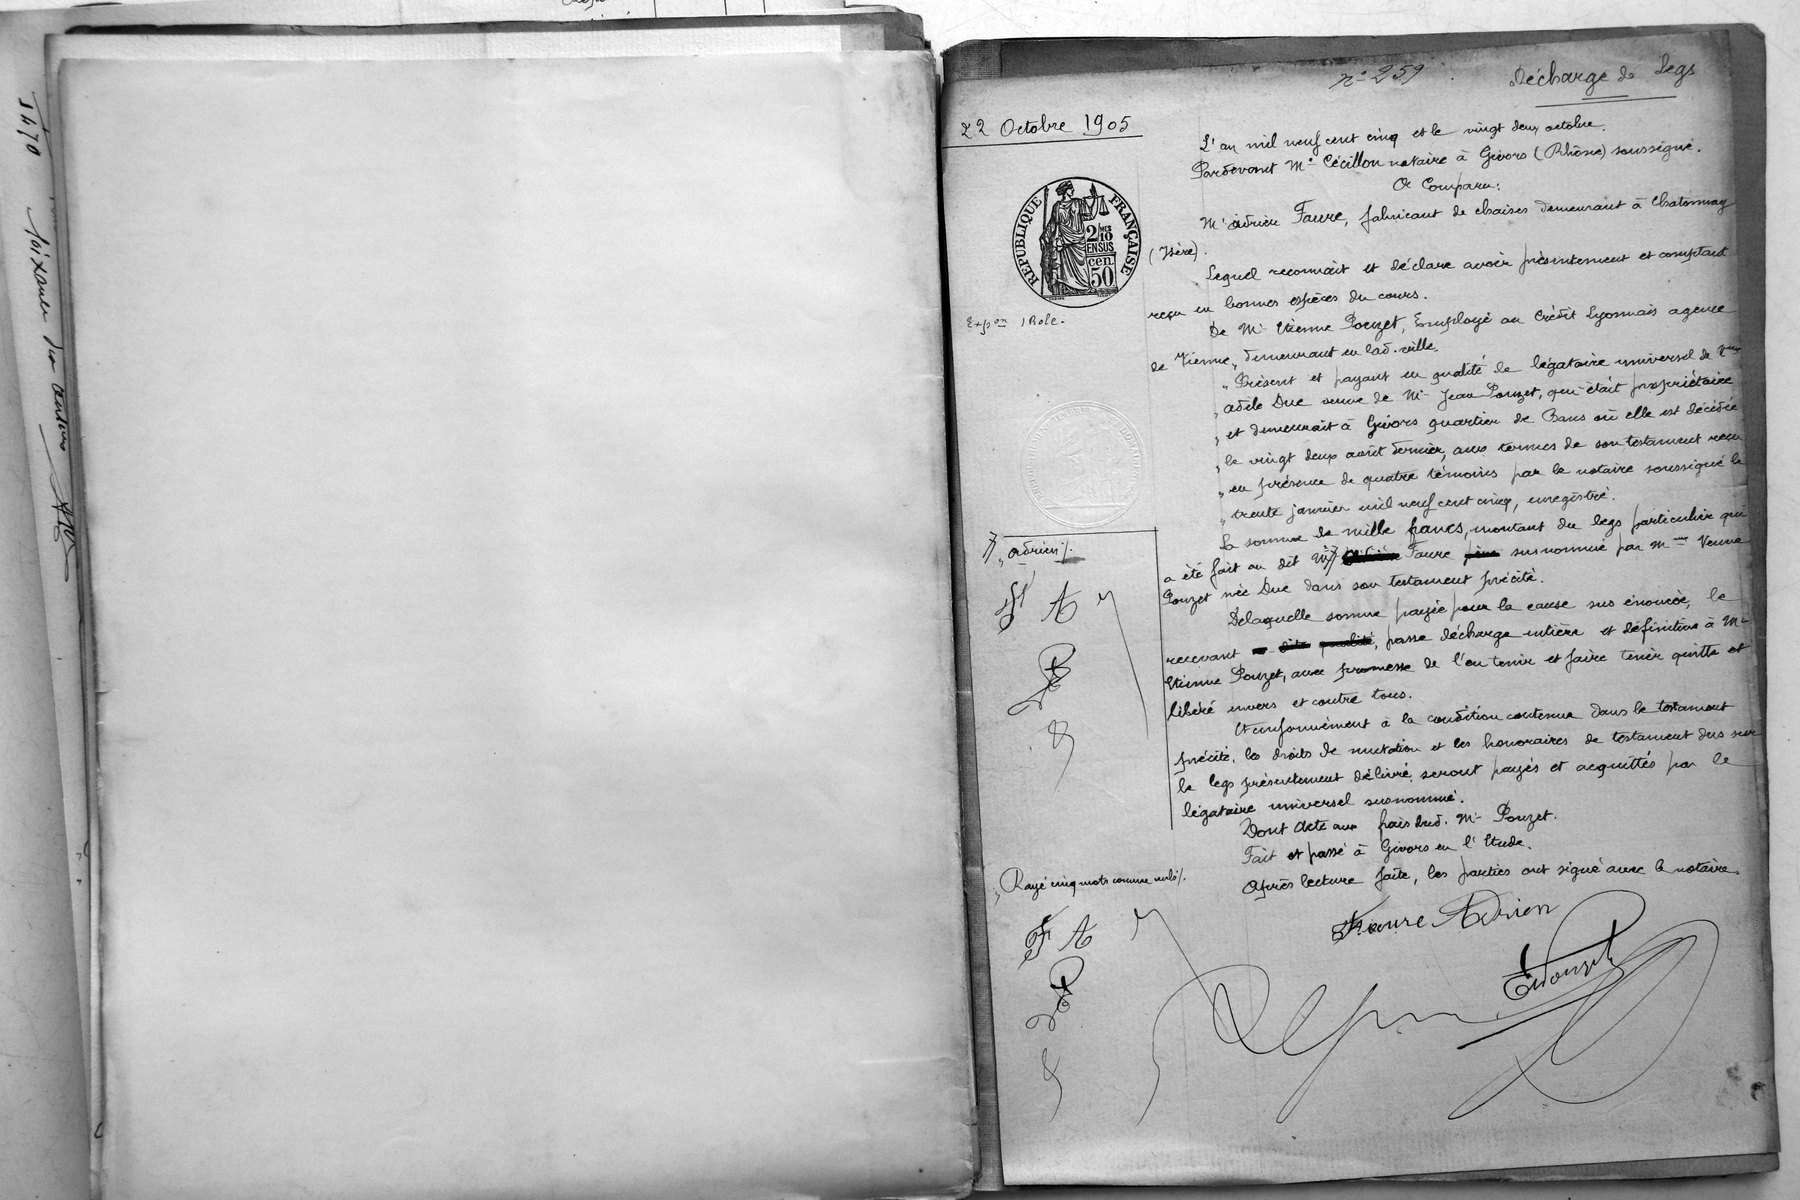 n° 259
Décharge de Legs
22 Octobre 1905
L'an mil neuf cent cinq et le vingt deux octobre.
Pardevant Me Cécillon notaire à Givors (Rhône) soussigné.
A Comparu:
Mr Adrien Faure, fabricant de chaises demeurant à Chatonnay
(Isère).
Lequel reconnait et déclare avoir présentement et comptant
reçu en bonnes espèces du cours.
De Mr Etienne Pouzet, Employé au Crédit Lyonnais agence
de Vienne, demeurant en lad. ville.
" Présent et payant en qualité de légataire universel de Dme
" Adèle Duc veuve de Mr Jean Pouzet, qui était propriétaire
" et demeurait à Givors quartier de Bans où elle est décédée
" le vingt deux août dernier, aux termes de son testament reçu
" en présence de quatre témoins par le notaire soussigné le
" trente janvier mil neuf cent cinq, enregistré.
La somme de mille francs, montant du legs particulier qui
a été fait au dit Mr Faure susnommé par Mme Veuve
Pouzet née Duc dans son testament précité.
Delaquelle somme payée pour la cause sus énoncée, le
recevant dite qualité, passe décharge entière et définitive à Mr
Etienne Pouzet, avec promesse de l'en tenir et faire tenir quitte et
libéré envers et contre tous.
Et conformément à la condition contenue dans le testament
précité, les droits de mutation et les honoraires de testament dus sur
le legs présentement délivré, seront payés et acquittés par le
légataire universel susnommé.
Dont Acte aux frais dud. Mr Pouzet.
Fait et passé à Givors en l'Etude.
Après lecture faite, les parties ont signé avec le notaire.
Faure Adrien
EPouzet
REPUBLIQUE FRANÇAISE
2/10 MES
EN SUS
50 cen
Expon 1 Role.
" Adrien /.
F A
" Rayé cinq mots comme nuls /.
F A